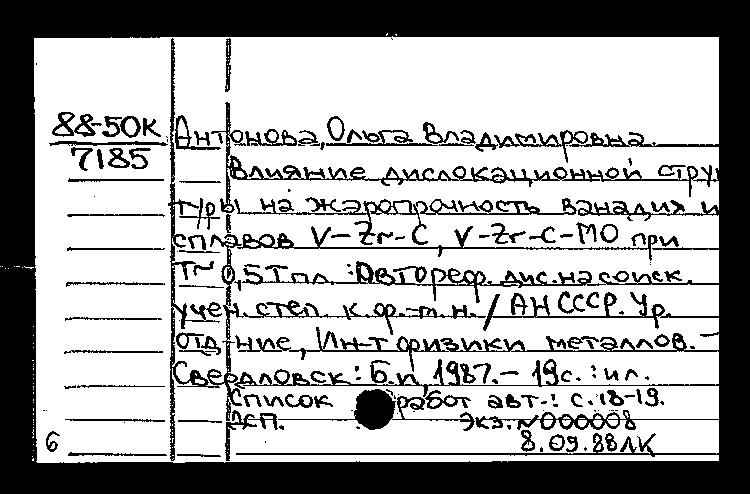 88-50К Антонова, Ольга Владимировна.
7185
Влияние дислокационной струк
туры на жаропрочность ванадия и
сплавов V-Zr-C, V-Zr-C-MO при
Т~0,5Тпл : Автореф. дис. на соиск.
учен. степ. к.ф.-м.н. / АН СССР. Ур.
отд-ние, Ин-т физики металлов. -
Свердловск : Б.и, 1987. - 19с. : ил.
Список работ авт.: с. 18-19.
ДСП. Экз. N000008
6 8.09.88ЛК